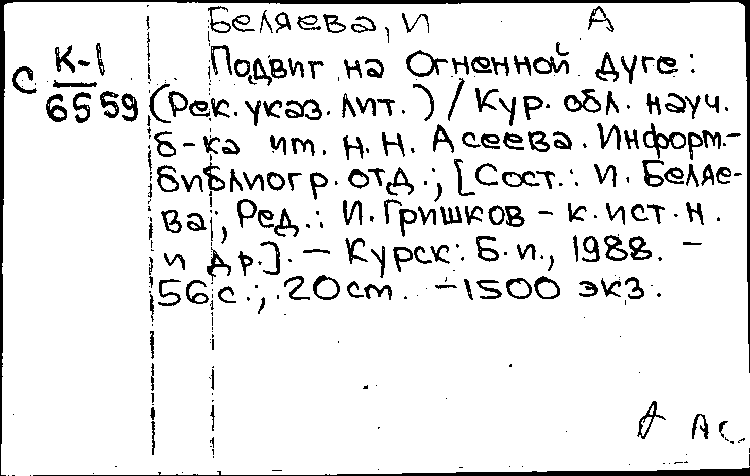 Беляева, И А
С К-1 Подвиг на Огненной дуге:
6559 (Рек. указ. лит.) / Кур. обл. науч.
б-ка им. Н. Н. Асеева. Информ.-
библиогр. отд.; [Сост.: И. Беляе-
ва; Ред.: И. Гришков - к. ист. н.
и др.]. - Курск: Б. и., 1988. -
56 с.; 20 cm. - 1500 экз.
АС